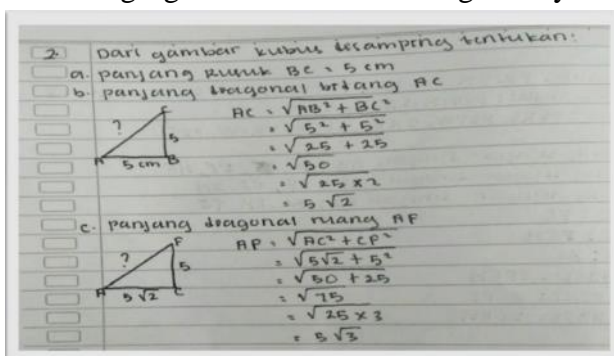 2. Dari gambar kubus disamping tentukan:
a. panjang rusuk BC = 5 cm
b. panjang diagonal bidang AC
AC = √AB² + BC²
= √5² + 5²
= √25 + 25
= √50
= √25 × 2
= 5√2
?
C
5
A 5 cm B
c. panjang diagonal ruang AP
AP = √AC² + CP²
= √5√2 + 5²
= √50 + 25
= √75
= √25 × 3
= 5√3
P
?
5
A 5√2 C